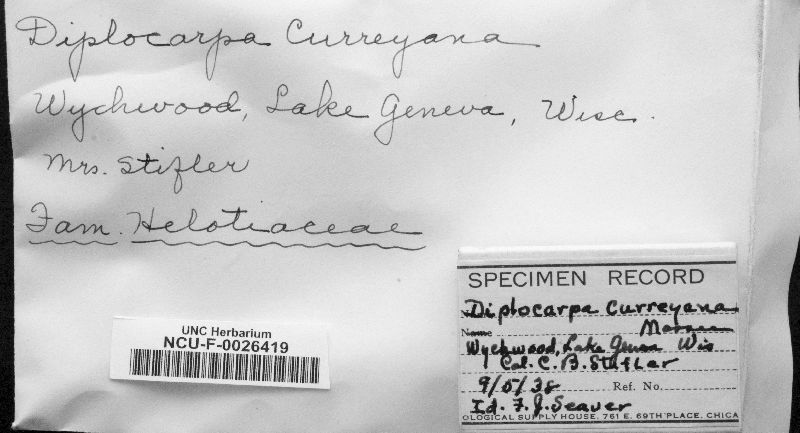 Diplocarpa Curreyana
Wychwood, Lake Geneva, Wisc.
Mrs. Stifler
Fam. Helotiaceae
SPECIMEN RECORD
Diplocarpa Curreyana
Name Massee
Wychwood, Lake Geneva Wis
Col. C. B. Stifler
9/5/38 Ref. No.
Id. F. J. Seaver
OLOGICAL SUPPLY HOUSE, 761 E. 69TH PLACE, CHICA
UNC Herbarium
NCU-F-0026419